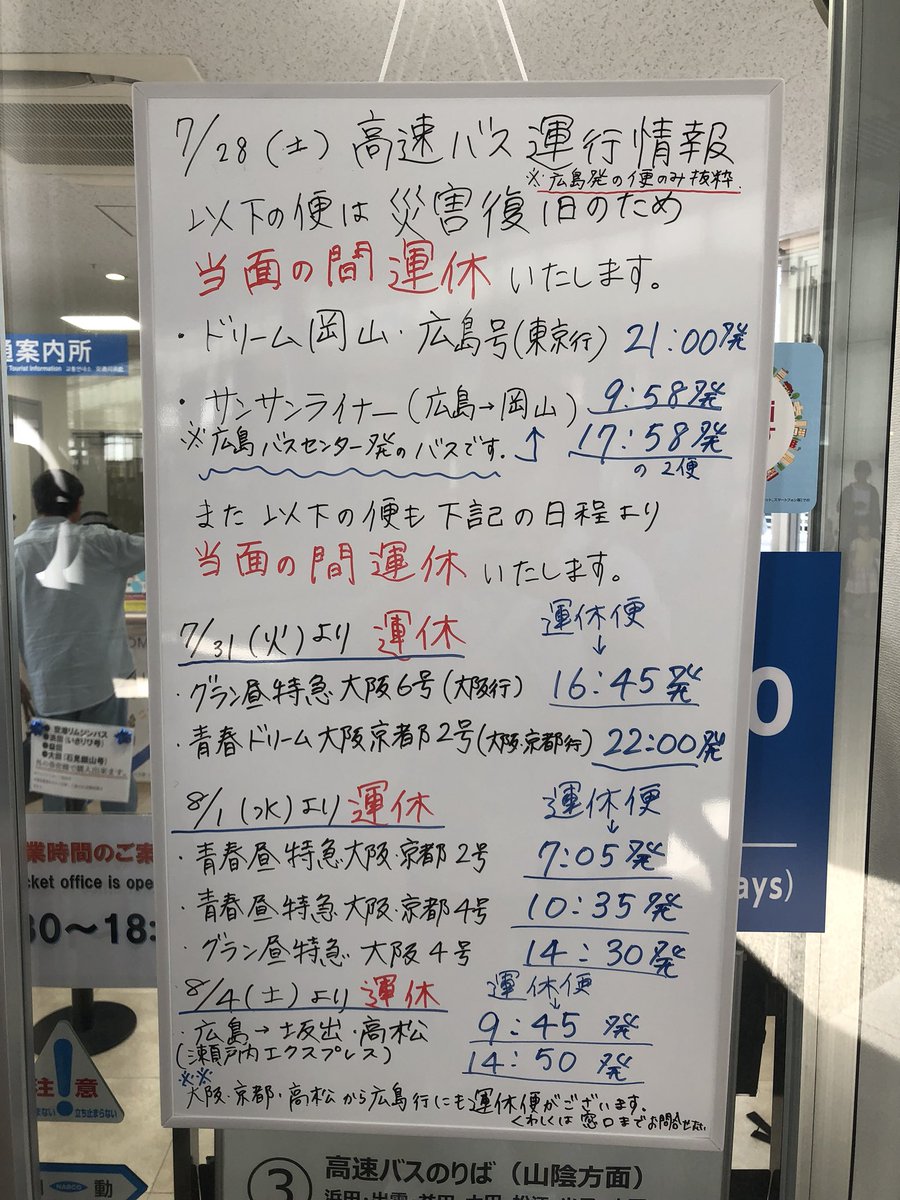 7/28(土) 高速バス運行情報
※広島発の便のみ抜粋.
以下の便は災害復旧のため
当面の間運休いたします。
・ドリーム岡山・広島号(東京行) 21:00発
・サンサンライナー(広島→岡山) 9:58発
※広島バスセンター発のバスです. ↑ 17:58発
の2便
また以下の便も下記の日程より
当面の間運休いたします。
7/31(火)より 運休 運休便
↓
・グラン昼特急大阪6号(大阪行) 16:45発
・青春ドリーム大阪京都2号(大阪・京都行) 22:00発
8/1(水)より 運休 運休便
↓
・青春昼特急大阪・京都2号 7:05発
・青春昼特急大阪・京都4号 10:35発
・グラン昼特急大阪4号 14:30発
8/4(土)より 運休 運休便
↓
・広島→坂出・高松 9:45発
(瀬戸内エクスプレス) 14:50発
※※
大阪・京都・高松から広島行にも運休便がございます。
くわしくは窓口までお問合せ下さい
通案内所
Tourist Information
●空港リムジンバス
●浜田(いさりび号)
●益田
●大田(石見銀山号)
業時間のご案
icket office is ope
30～18:
注意
立ち止まらない
動
NARCO
o
ays)
③ 高速バスのりば(山陰方面)
浜田・出雲・益田・大田・松江